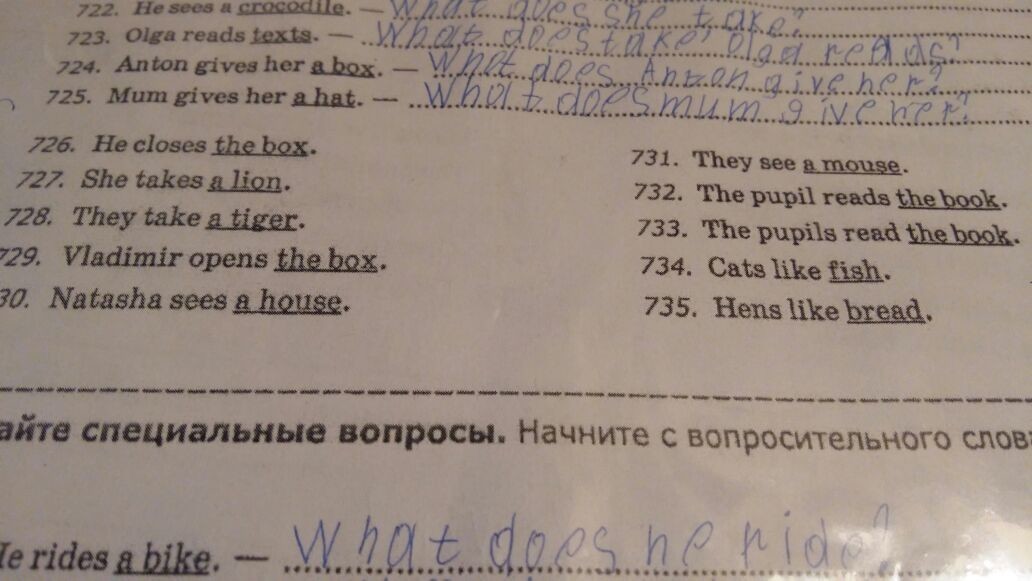 722. He sees a crocodile. — What does she take?
723. Olga reads texts. — What does take, Olga reads?
724. Anton gives her a box. — What does Anton give her?
725. Mum gives her a hat. — What does mum give her?
726. He closes the box.
727. She takes a lion.
728. They take a tiger.
729. Vladimir opens the box.
30. Natasha sees a house.
731. They see a mouse.
732. The pupil reads the book.
733. The pupils read the book.
734. Cats like fish.
735. Hens like bread.
айте специальные вопросы. Начните с вопросительного слов
He rides a bike. — What does he ride?